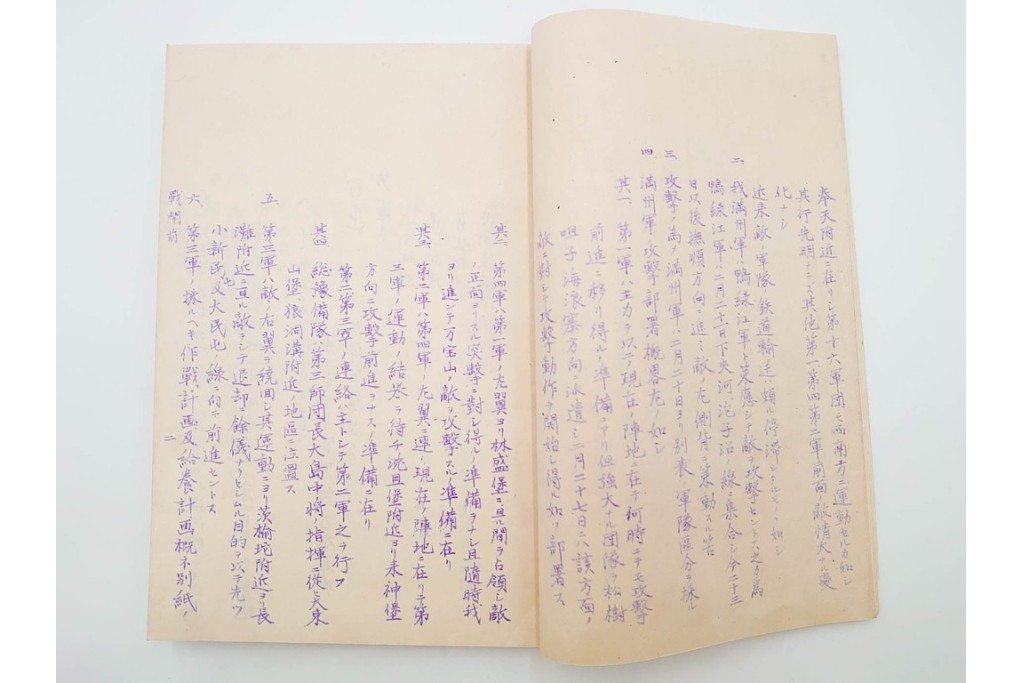 奉天附近ニ在リシ第十六軍団モ西南方ニ運動セルカ如シ
其行先明ナラス其他第一第四第二軍前面ノ敵情大ナル変
化ナシ
近来敵ノ軍隊鉄道輸送ハ頗ル停滞シアルモノヽ如シ
二、我満州軍ハ鴨緑江軍ト策應シテ敵ヲ攻撃セントス之カ為
鴨緑江軍ハ二月二十一日下夾河、沱子沿ノ線ニ集合シ今二十三
日以後撫順方向ニ進ミ敵ノ左側背ニ策動スル筈
三、攻撃ノ為メ満州軍ハ二月二十日ヨリ別表ノ軍隊区分ヲ採ル
四、満州軍ノ攻撃部署概畧左ノ如シ
其一、第一軍ハ主力ヲ以テ現在ノ陣地ニ在テ何時ニテモ攻撃
前進ニ移リ得ルノ準備ニ在リ但強大ナル団隊ヲ松樹
咀子海浪寨方向ニ派遣シ二月二十七日ハ該方面ノ
敵ニ対シテ攻撃動作ヲ開始シ得ル如ク部署ス
其二、第四軍ハ第一軍ノ左翼ヨリ林盛堡ニ亘ル間ヲ占領シ敵
ノ正面ヨリスル突撃ニ對シ得ルノ準備ヲナシ且隨時我
ヨリ進ンテ万宝山ノ敵ヲ攻撃スルノ準備ニ在リ
其三、第二軍ハ第四軍ノ左翼ニ連リ現在ノ陣地ニ在リテ第
三軍ノ運動ノ結果ヲ待チ沈且堡附近ヨリ来神堡
方向ニ攻撃前進ヲナスノ準備ニ在リ
第二第三軍ノ連絡ハ主トシテ第二軍之ヲ行フ
其四、総豫備隊ハ第三師団長大島中将ノ指揮ニ從ヒ大東
山堡、狼洞溝附近ノ地區ニ位置ス
五、第三軍ハ敵ノ右翼ヲ繞囬シ其運動ニヨリ茨楡坨附近ヨリ長
灘附近ニ亘ル敵ヲシテ退却ノ餘儀ナクセシムル目的ヲ以テ先ツ
小新民屯及大民屯ノ線ニ向テ前進セントス
六、第三軍ノ採ルヘキ作戦計画及給養計画概ネ別紙ノ
戦闘前 二